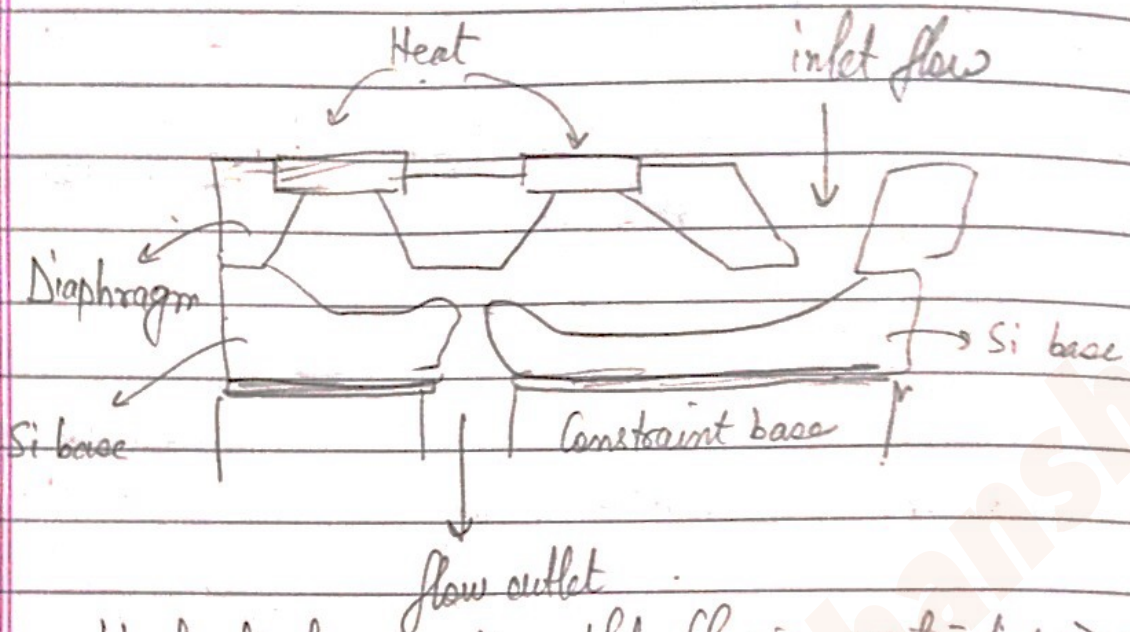 Heat
inlet flow
Diaphragm
Si base
Si base
Constraint base
flow outlet